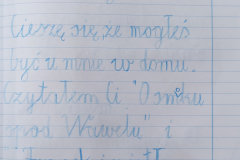 Cieszę się, że mogłeś
być u mnie w domu.
Czytałem Ci "O smoku
spod Wawelu" i